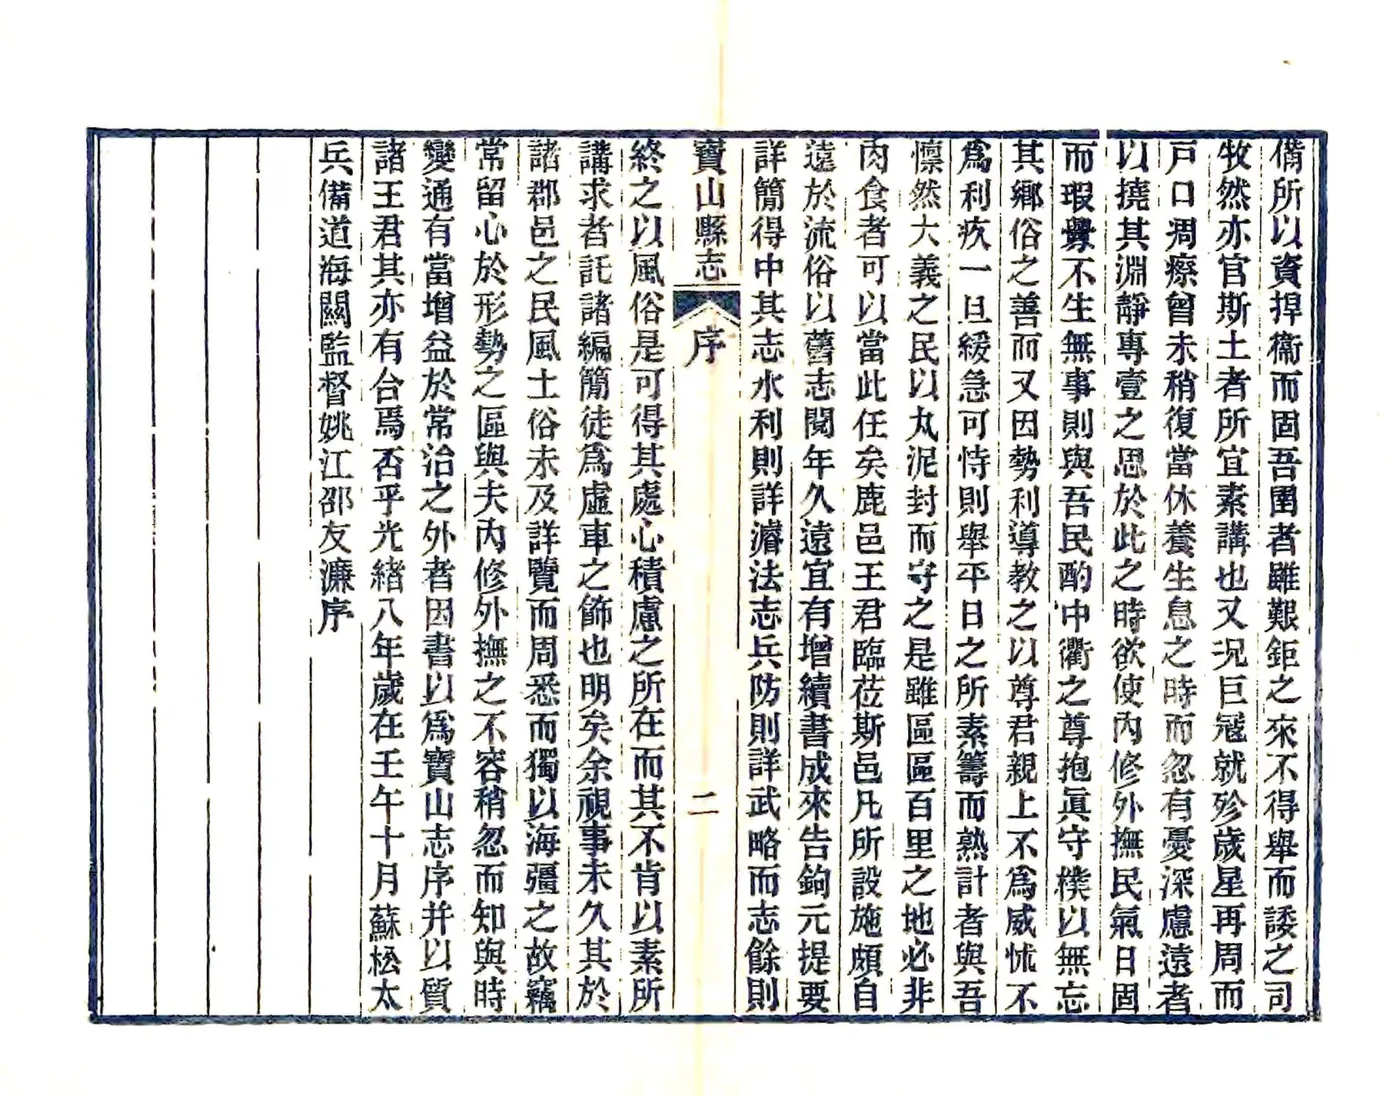 備所以資捍衞而固吾圉者雖艱鉅之來不得舉而諉之司
牧然亦官斯土者所宜素講也又況巨寇就殄歲星再周而
戸口凋瘵曾未稍復當休養生息之時而忽有憂深慮遠者
以撓其淵靜專壹之思於此之時欲使內修外撫民氣日固
而瑕釁不生無事則與吾民酌中衢之尊抱眞守樸以無忘
其鄉俗之善而又因勢利導教之以尊君親上不爲威怵不
爲利疚一旦緩急可恃則舉平日之所素籌而熟計者與吾
懍然大義之民以丸泥封而守之是雖區區百里之地必非
肉食者可以當此任矣鹿邑王君臨莅斯邑凡所設施頗自
遠於流俗以舊志閱年久遠宜有增續書成來告鉤元提要
詳簡得中其志水利則詳濬法志兵防則詳武略而志餘則
寶山縣志
序
二
終之以風俗是可得其處心積慮之所在而其不肯以素所
講求者託諸編簡徒爲虛車之飾也明矣余視事未久其於
諸郡邑之民風土俗未及詳覽而周悉而獨以海疆之故竊
常留心於形勢之區與夫內修外撫之不容稍忽而知與時
變通有當增益於常治之外者因書以爲寶山志序并以質
諸王君其亦有合焉否乎光緒八年歲在壬午十月蘇松太
兵備道海關監督姚江邵友濂序